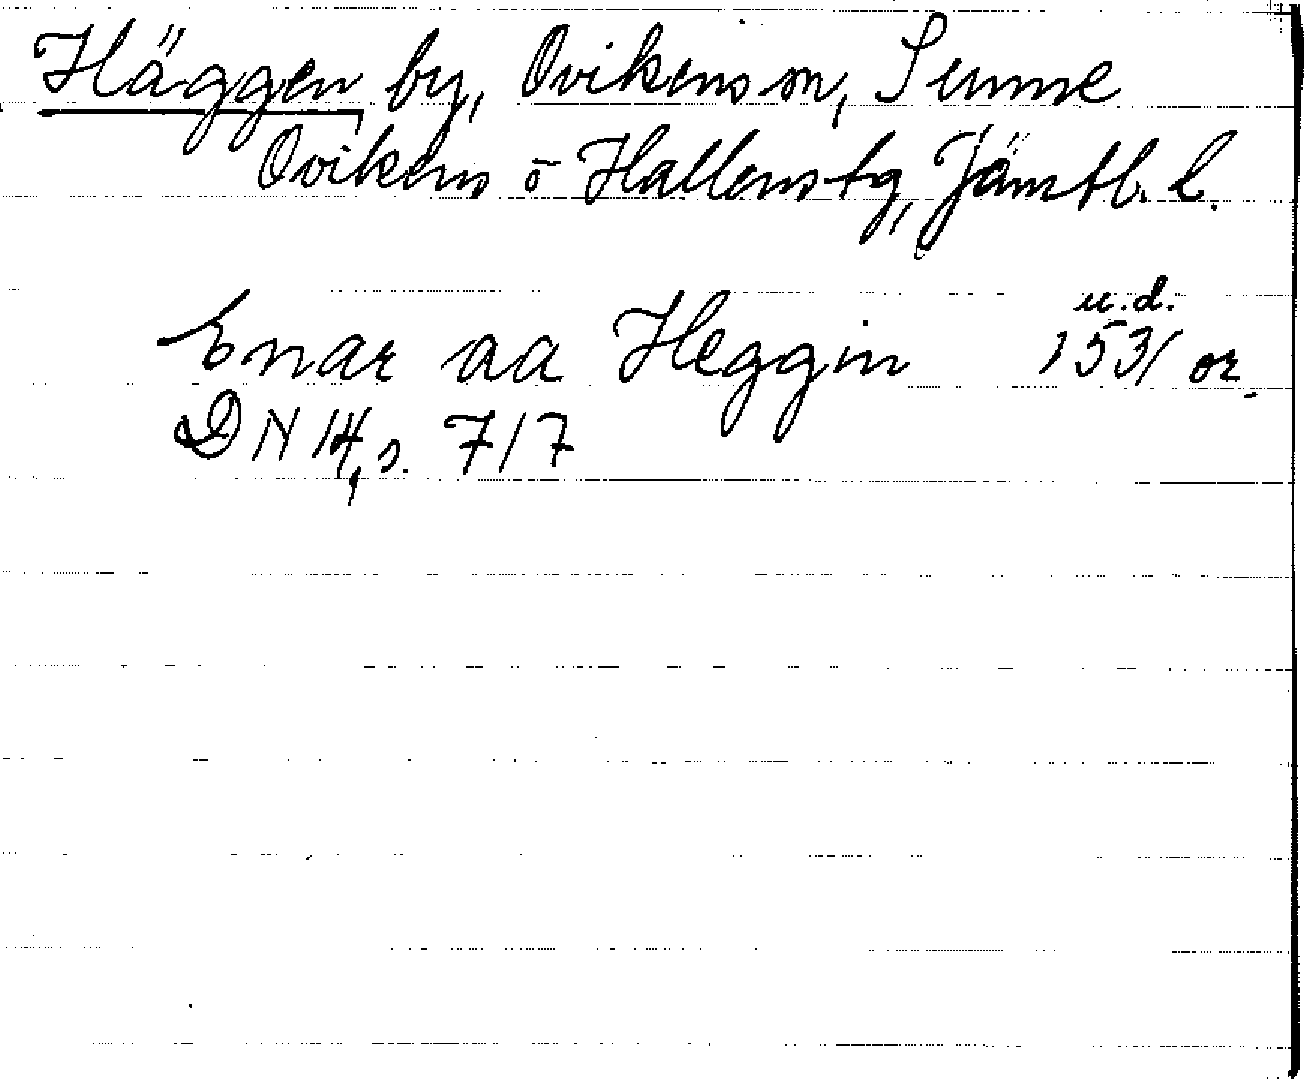 Häggen by, Ovikens sn, Sunne
Ovikens o Hallens tg, Jämtl. l.
Enar aa Heggin u.d. 1531 or.
DN 14, s. 717